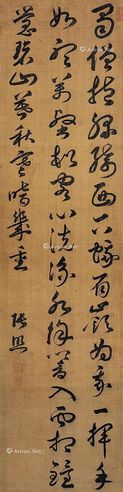 蜀僧抱綠綺西下峨眉峰為我一揮手
如聽萬壑松客心洗流水餘響入霜鐘
不覺碧山暮秋雲暗幾重 張照
Artron.Net